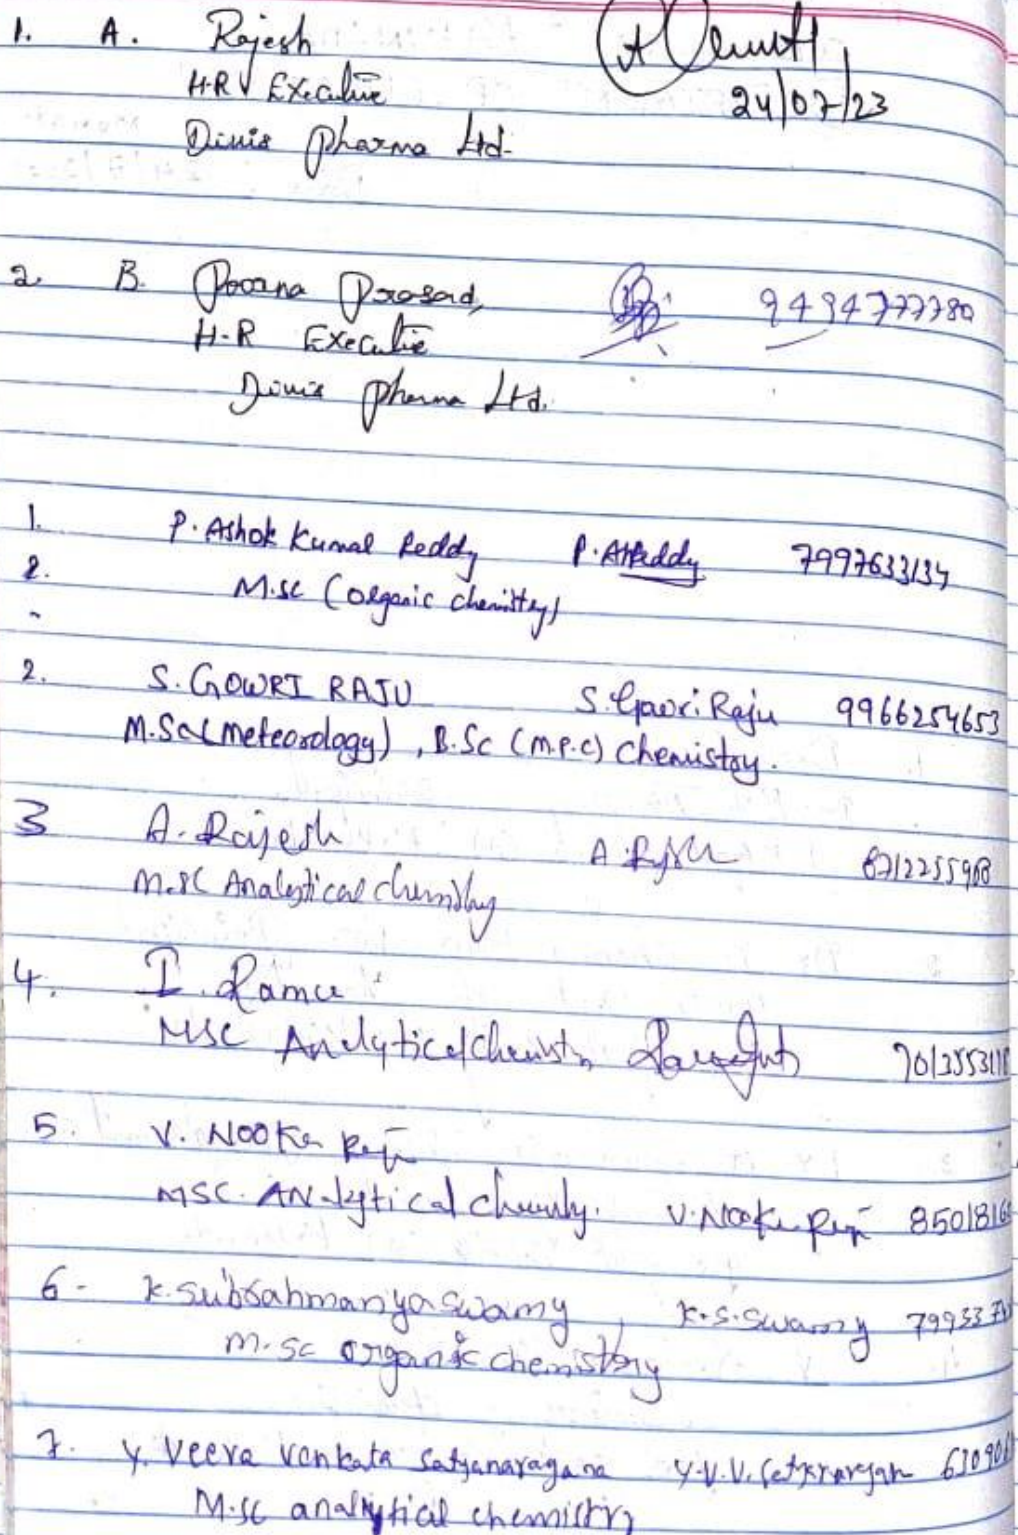 1. A. Rajesh
H.R Executive
Divis Pharma Ltd.
24/07/23
2. B. Poorna Prasad,
9494777780
H.R Executive
Divis Pharma Ltd.
1. P. Ashok Kumar Reddy P. AKReddy 7997633134
2. M.sc (organic chemistry)
2. S. GOWRI RAJU S. Gowri Raju 9966254653
M.Sc (Meteorology), B.Sc (M.P.C) Chemistry.
3 A. Rajesh A. Rajesh
M.SC Analytical chemistry
4. I. Ramu
MSC Analytical chemistry
5. V. NOOKa Raju
MSC. ANalytical chemistry. V. Nooka Raju 8501816
6- K. Subrahmanya Swamy, K.S. Swamy 79933
M.SC organic chemistry
7. Y. Veera Venkata Satyanarayana Y.V.V. Satyanarayana 63090
M.SC analytical chemistry